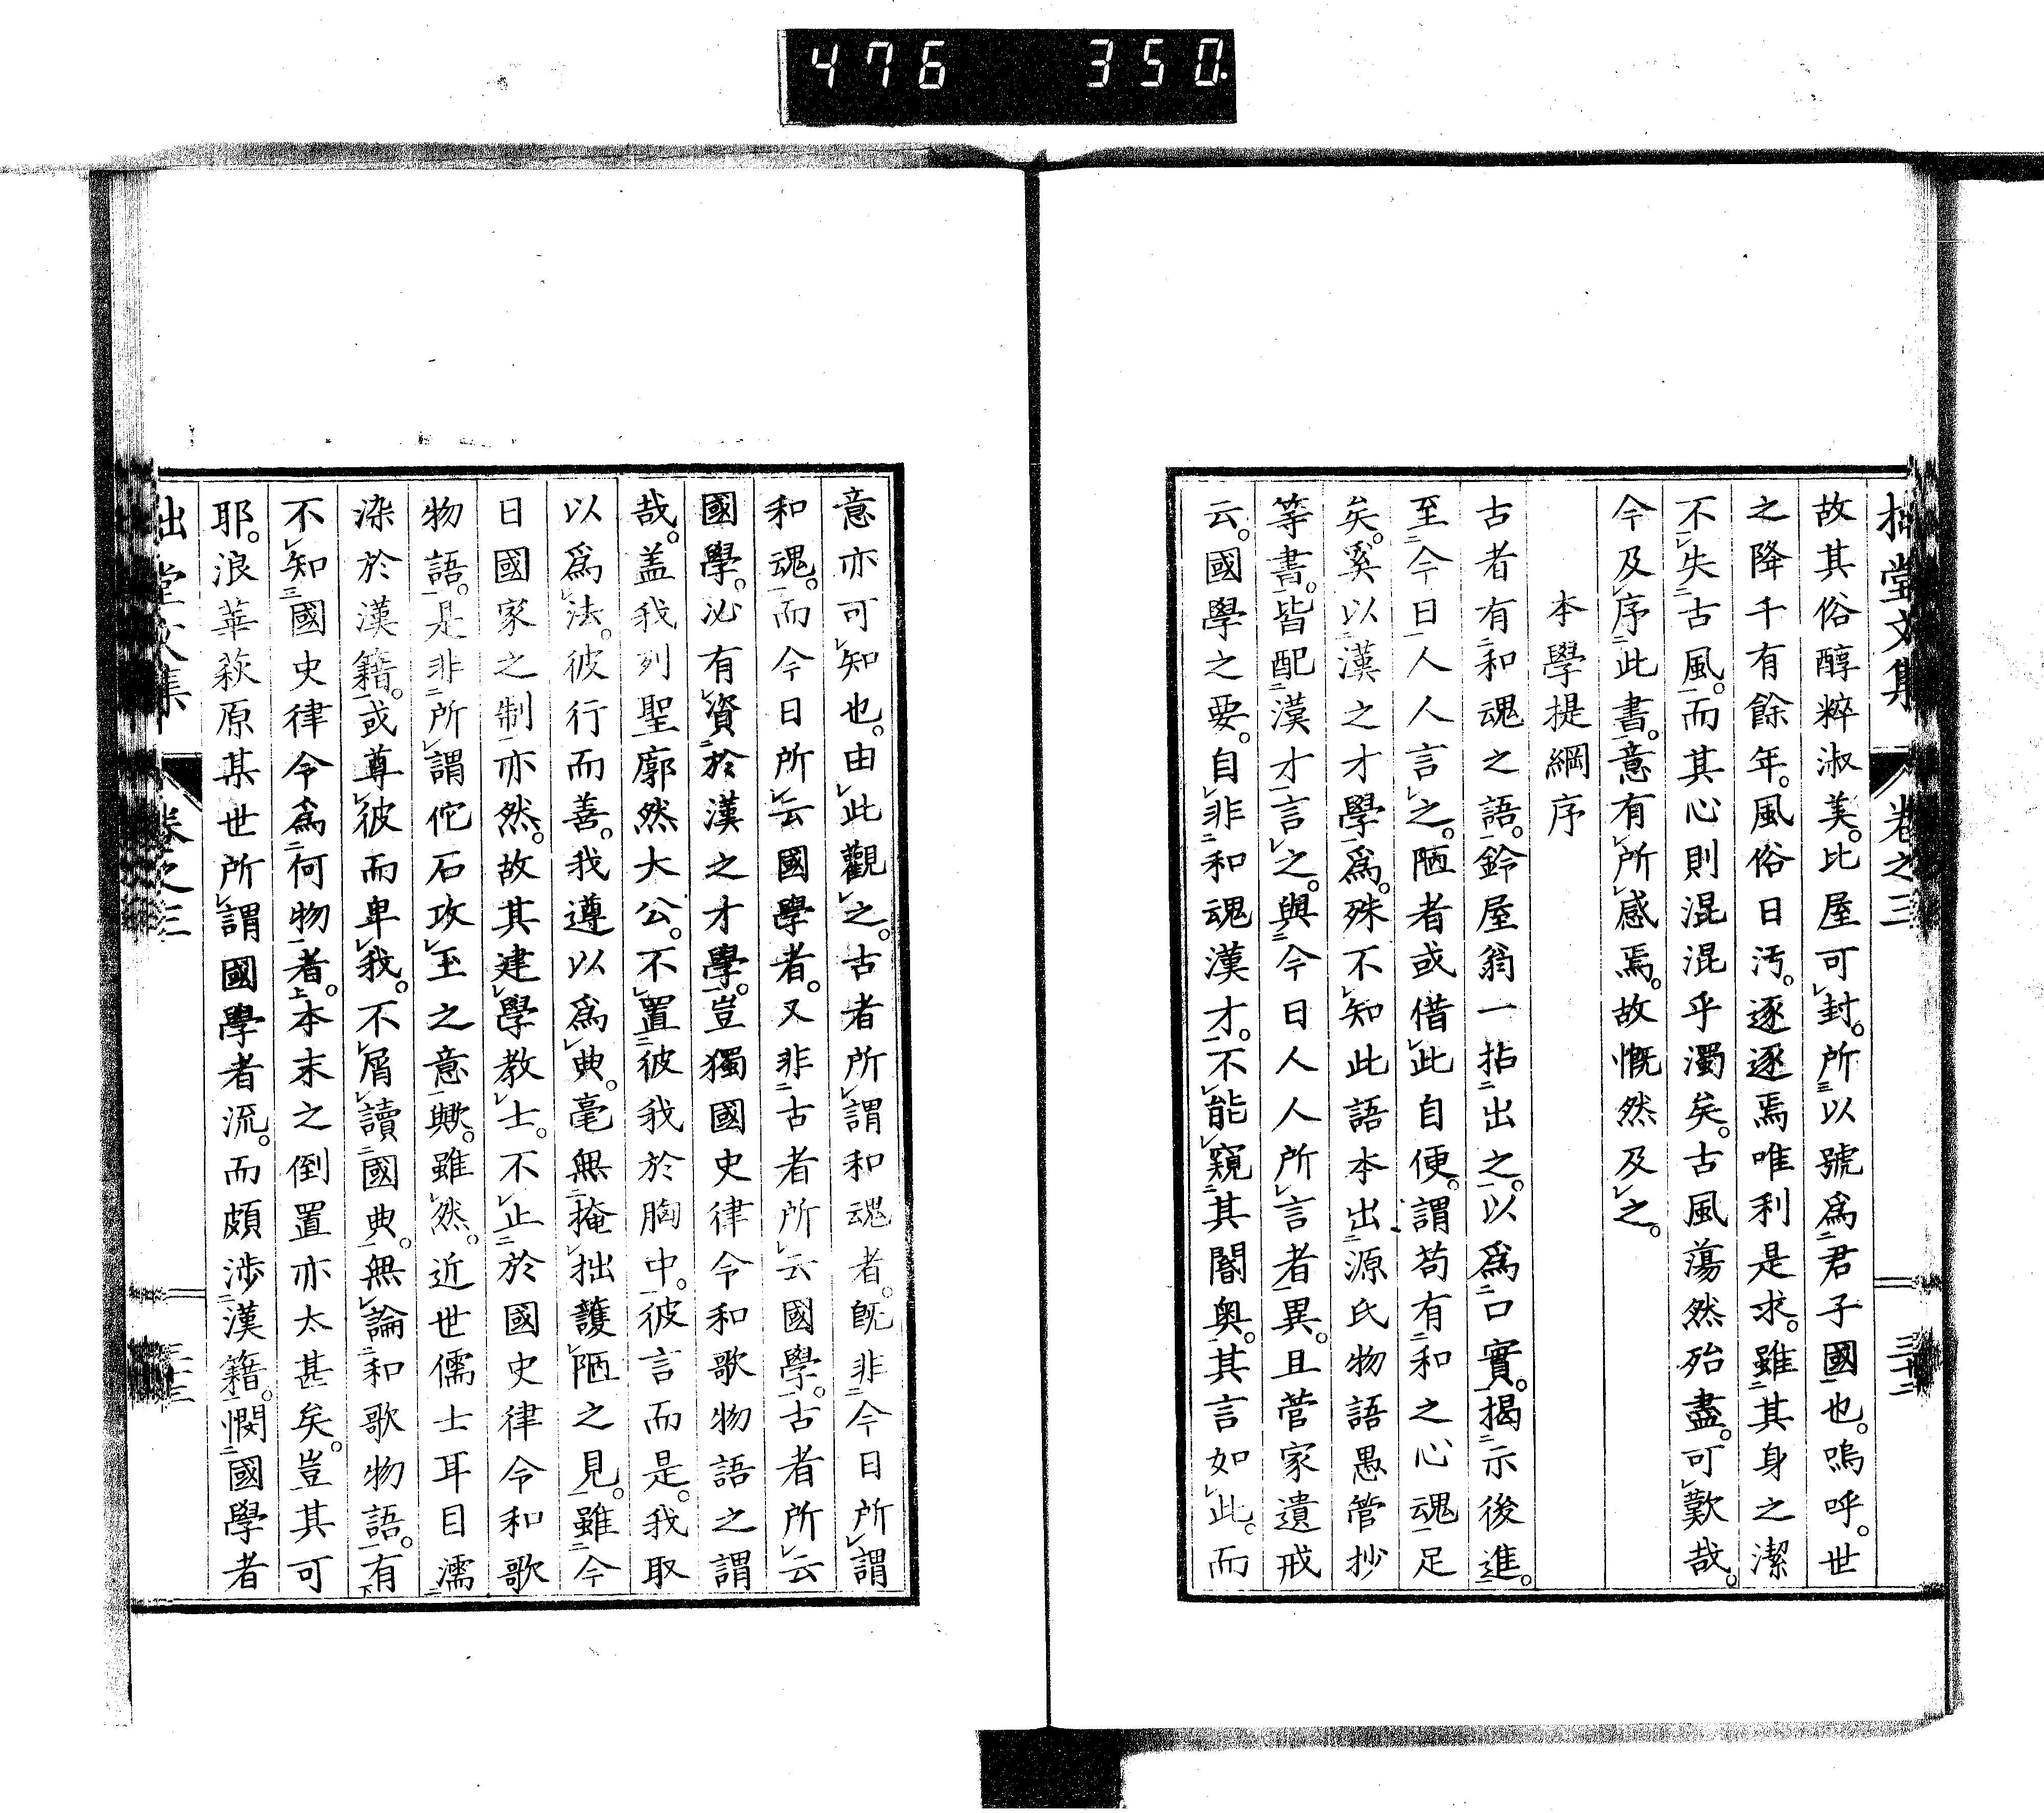 476 350
拙堂文集 卷之三 三十二
故其俗醇粹淑美。比屋可封。所以號爲君子國也。嗚呼。世
之降千有餘年。風俗日汚。逐逐焉唯利是求。雖其身之潔
不失古風。而其心則混混乎濁矣。古風蕩然殆盡。可歎哉。
今及序此書。意有所感焉。故慨然及之。
本學提綱序
古者有和魂之語。鈴屋翁一拈出之。以爲口實。揭示後進。
至今日人人言之。陋者或借此自便。謂苟有和之心魂足
矣。奚以漢之才學爲。殊不知此語本出源氏物語愚管抄
等書。皆配漢才言之。與今日人人所言者異。且菅家遺戒
云。國學之要。自非和魂漢才。不能窺其閫奧。其言如此。而
意亦可知也。由此觀之。古者所謂和魂者。既非今日所謂
和魂。而今日所云國學者。又非古者所云國學。古者所云
國學。必有資於漢之才學。豈獨國史律令和歌物語之謂
哉。盖我列聖廓然大公。不置彼我於胸中。彼言而是。我取
以爲法。彼行而善。我遵以爲典。毫無掩拙護陋之見。雖今
日國家之制亦然。故其建學教士。不止於國史律令和歌
物語。是非所謂佗石攻玉之意歟。雖然。近世儒士耳目濡
染於漢籍。或尊彼而卑我。不屑讀國典。無論和歌物語。有
不知國史律令爲何物者。本末之倒置亦太甚矣。豈其可
耶。浪華萩原某世所謂國學者流。而頗涉漢籍。憫國學者
拙堂文集 卷之三